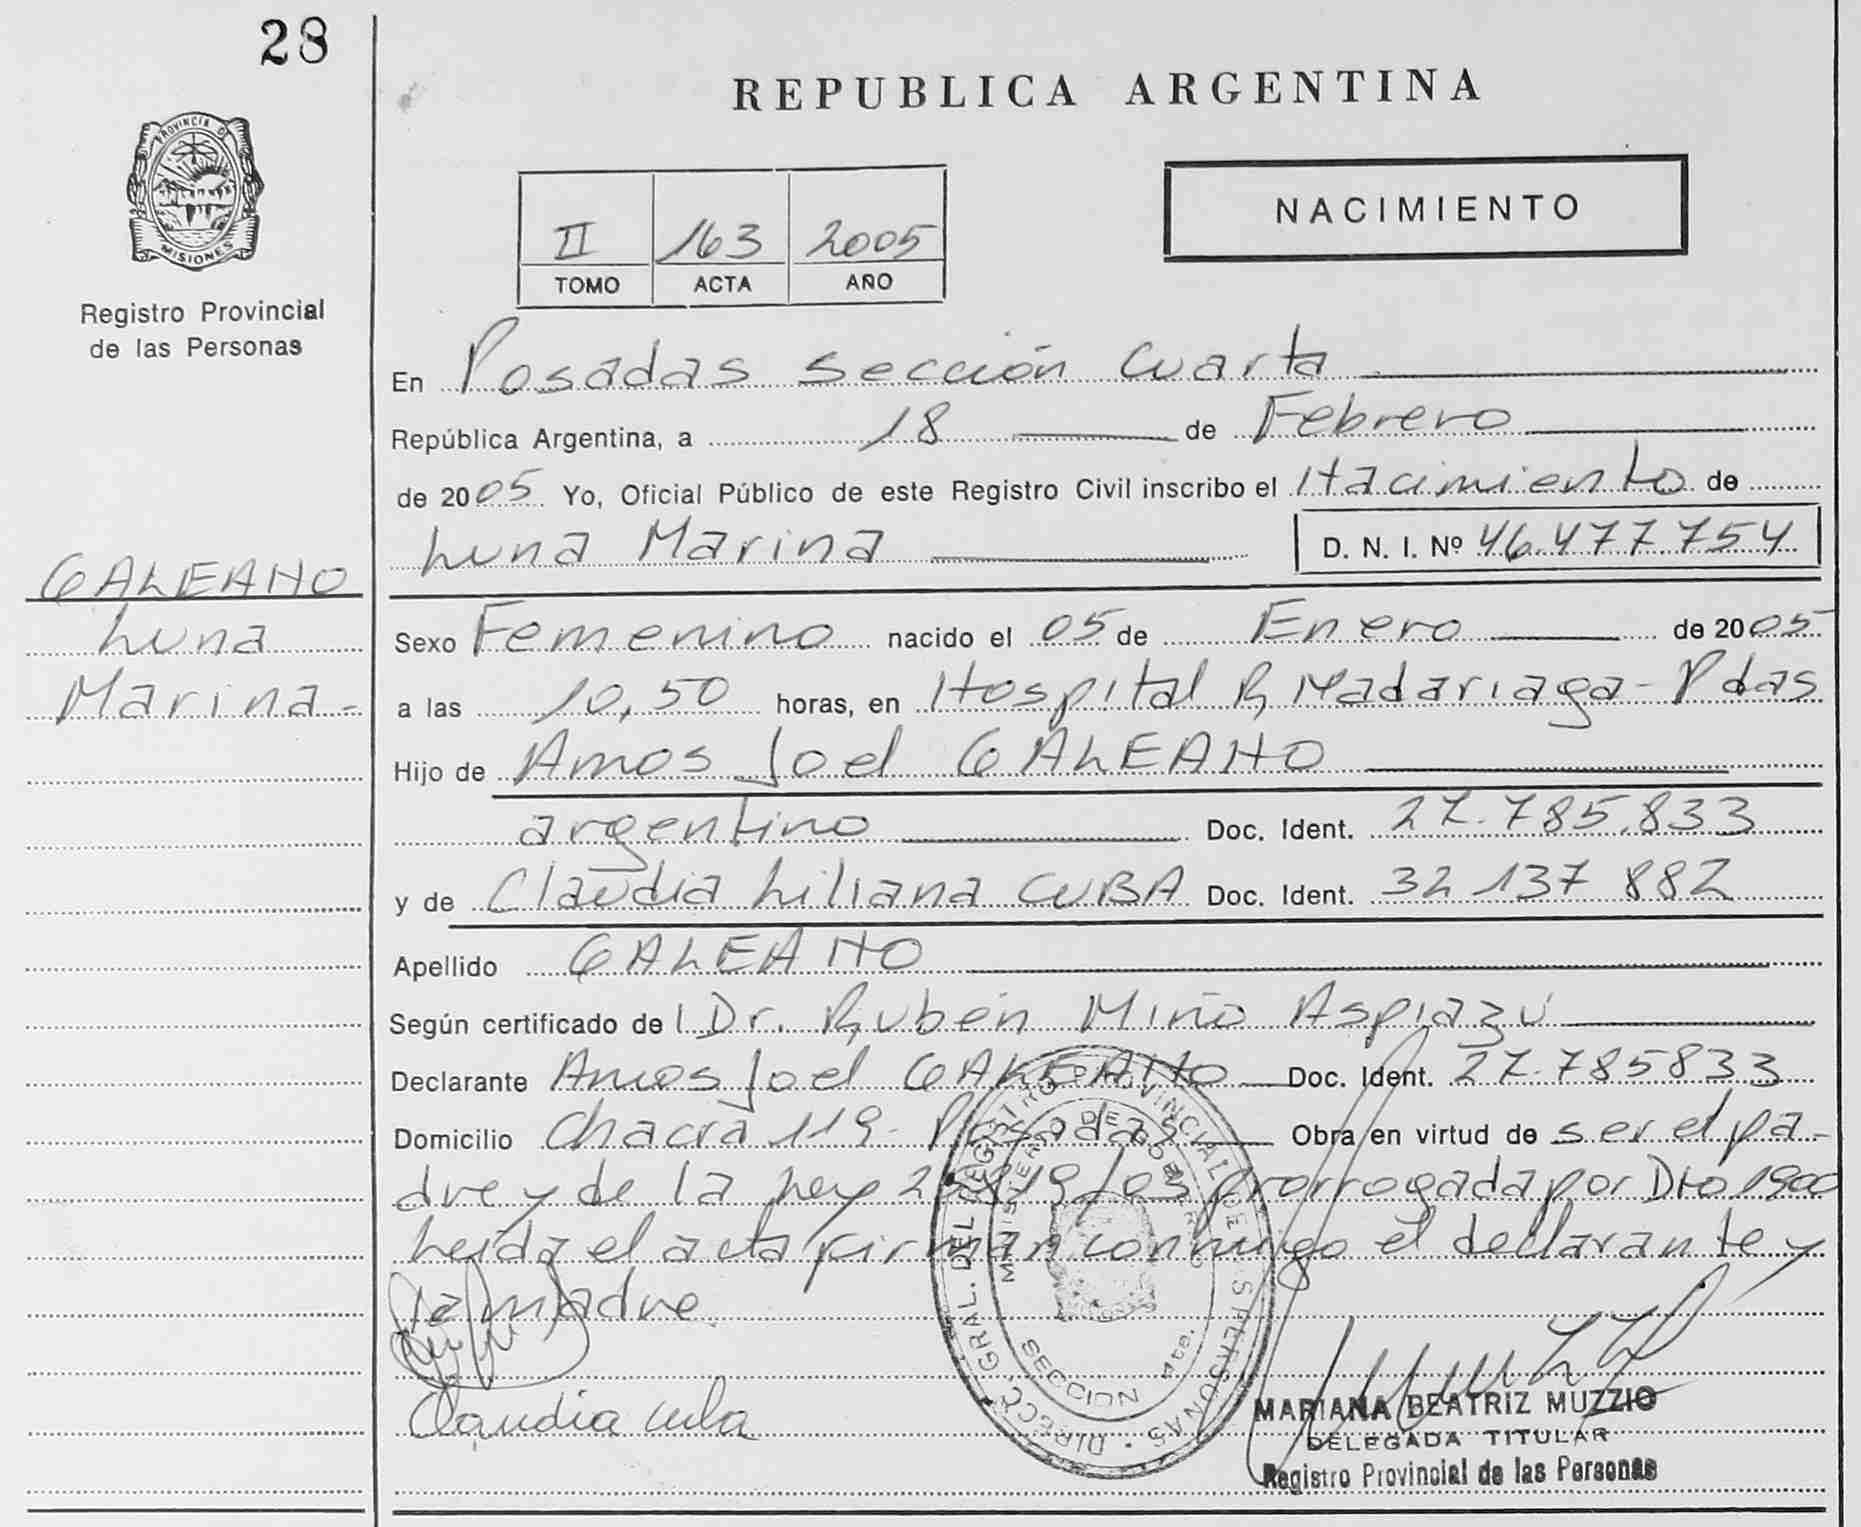 28
PROVINCIA DE
MISIONES
Registro Provincial
de las Personas
REPUBLICA ARGENTINA
NACIMIENTO
II 163 2005
TOMO ACTA AÑO
En Posadas sección Cuarta
República Argentina, a 18 de Febrero
de 2005 Yo, Oficial Público de este Registro Civil inscribo el Nacimiento de
Luna Marina D. N. I. Nº 46.477.754
GALEANO
Luna
Marina-
Sexo Femenino nacido el 05 de Enero de 2005
a las 10,50 horas, en Hospital R, Madariaga - Pdas
Hijo de Amos Joel GALEANO
argentino Doc. Ident. 27.785.833
y de Claudia Liliana CUBA Doc. Ident. 32 137 882
Apellido GALEANO
Según certificado de l Dr. Rubén Miño Aspiazú
Declarante Amos Joel GALEANO Doc. Ident. 27.785833
Domicilio Chacra 119- Posadas Obra en virtud de ser el pa-
dre y de la Ley 25819/03 prorrogada por Dto 1900
Leída el acta firman conmigo el declarante y
la madre.
Claudia Cuba
DIRECC. GRAL. DEL REGISTRO PROVINCIAL DE LAS PERSONAS
MINISTERIO DE GOBIERNO
SECCION 4ta.
MARIANA BEATRIZ MUZZIO
DELEGADA TITULAR
Registro Provincial de las Personas